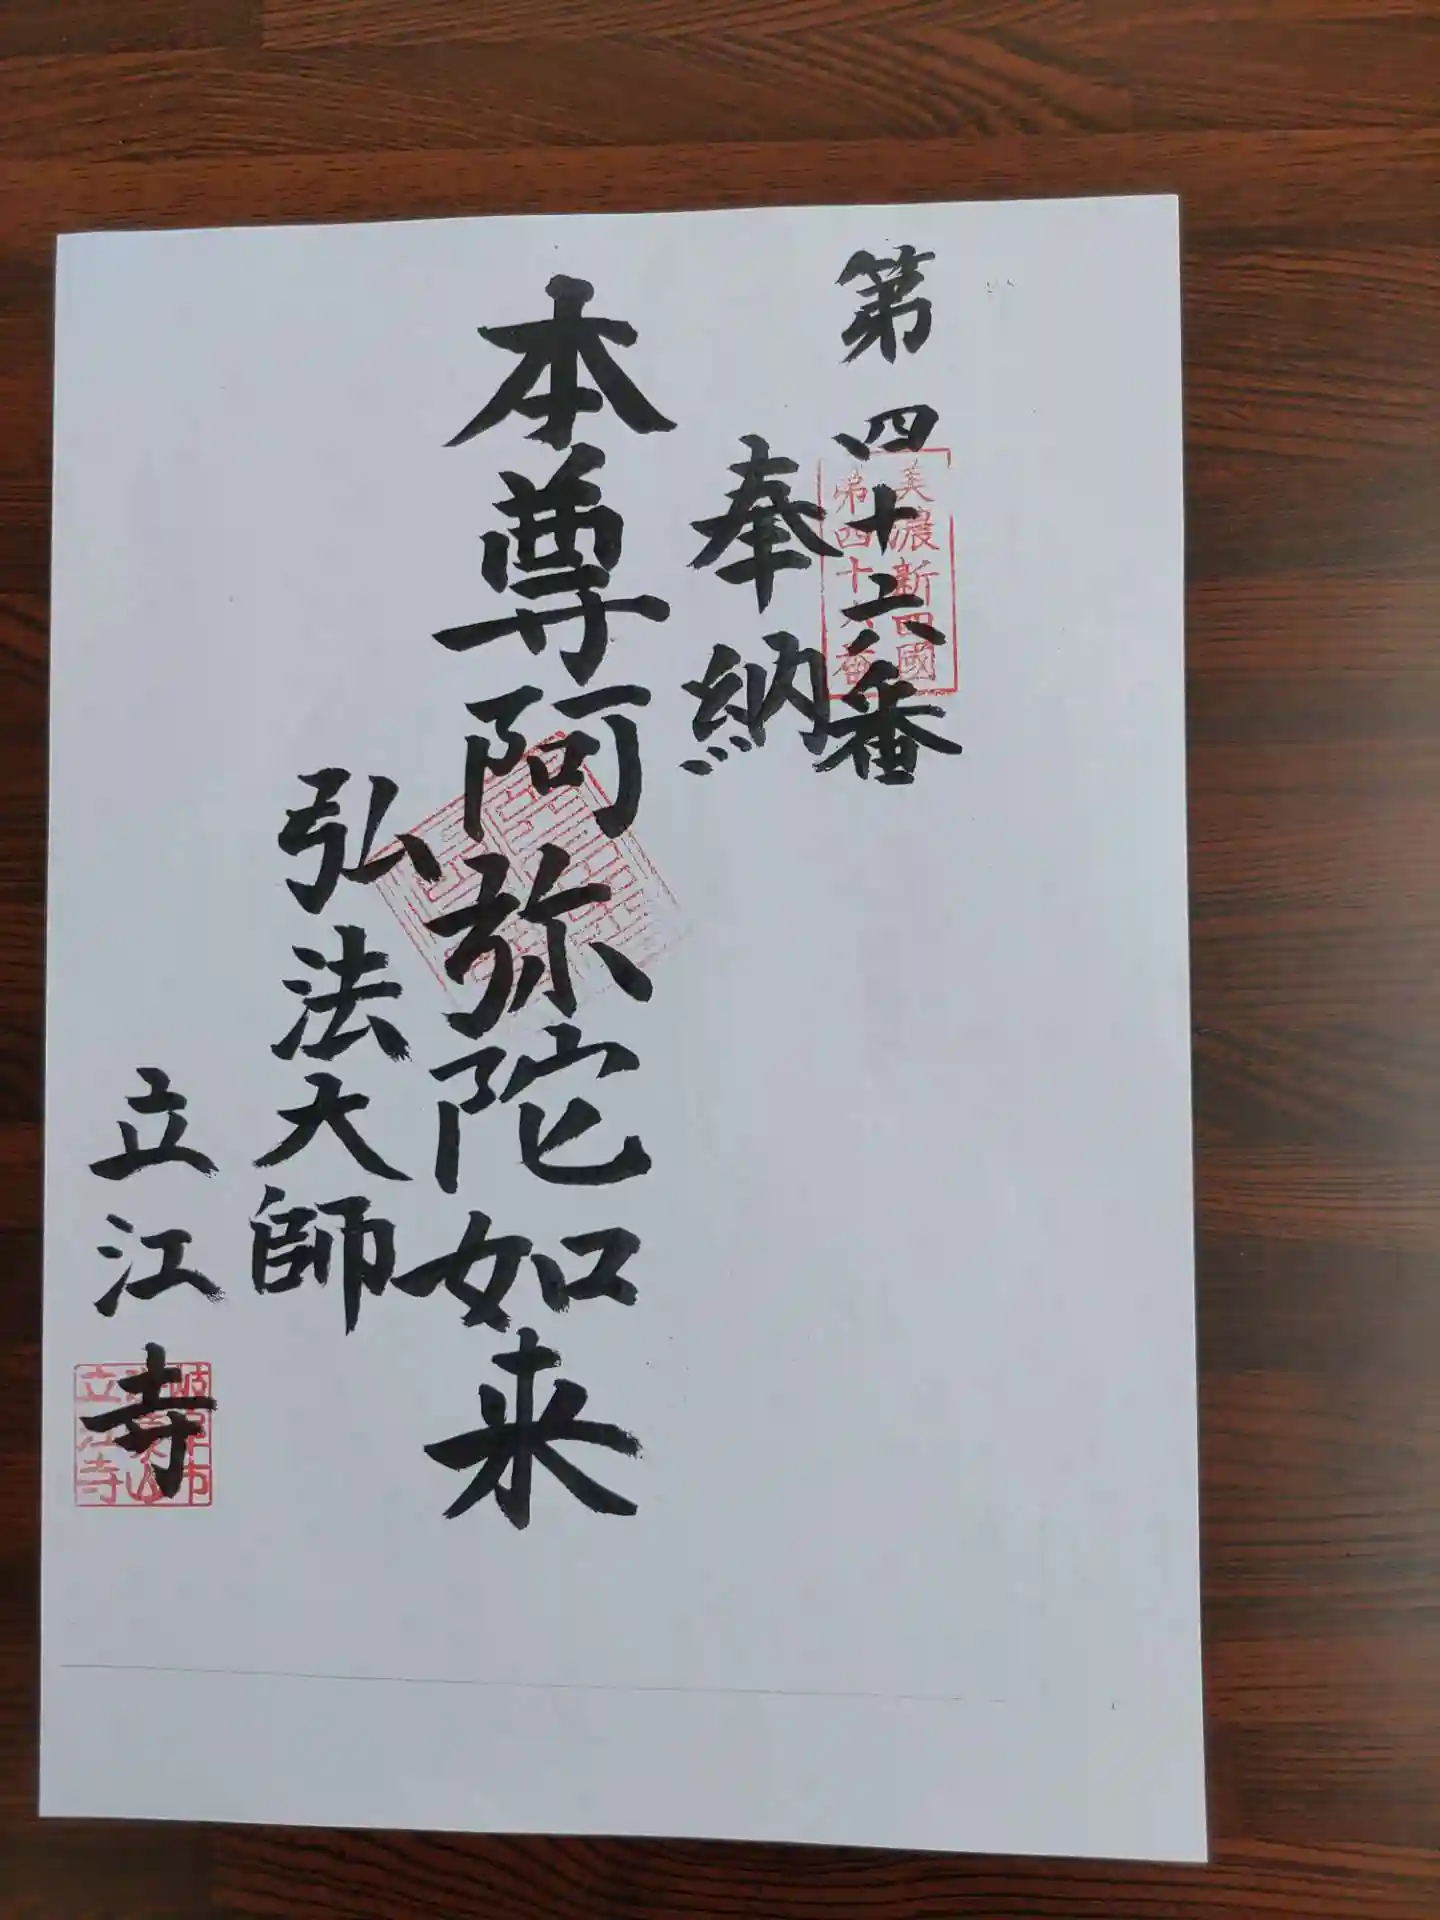 第四十六番
美濃新四國
第四十六番
奉納
本尊阿弥陀如来
弘法大師
立江寺
岐阜市
立江寺